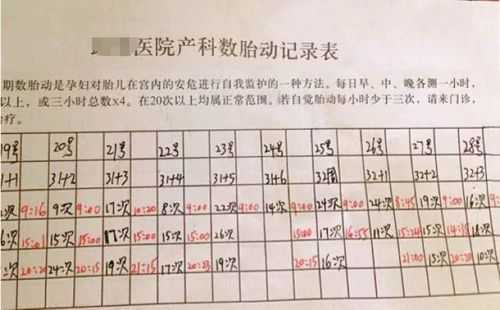 医院产科数胎动记录表
期数胎动是孕妇对胎儿在宫内的安危进行自我监护的一种方法。每日早、中、晚各测一小时,
以上,或三小时总数x4。在20次以上均属正常范围。若自觉胎动每小时少于三次,请来门诊,
治疗。
19号 20号 21号 22号 23号 24号 25号 26号 27号 28号
31+1 31+2 31+3 31+4 31+5 31+6 32周 32+1 32+2 32+3
次 9:16 9次 9:00 17次 10:20 8次 9:00 22次 9:00 14次 9:00 24次 9:00 24次 8:45 19次 9:00 16
6次 15:01 15次 15:00 17次 15:00 15次 15:00 26次 15:00 17次 16:55 11次 15:24 15次 14:18 18次
次 20:20 24次 20:15 19次 21:15 17次 20:23 19次 20:15 16次 21:00 15次 20:20 10次